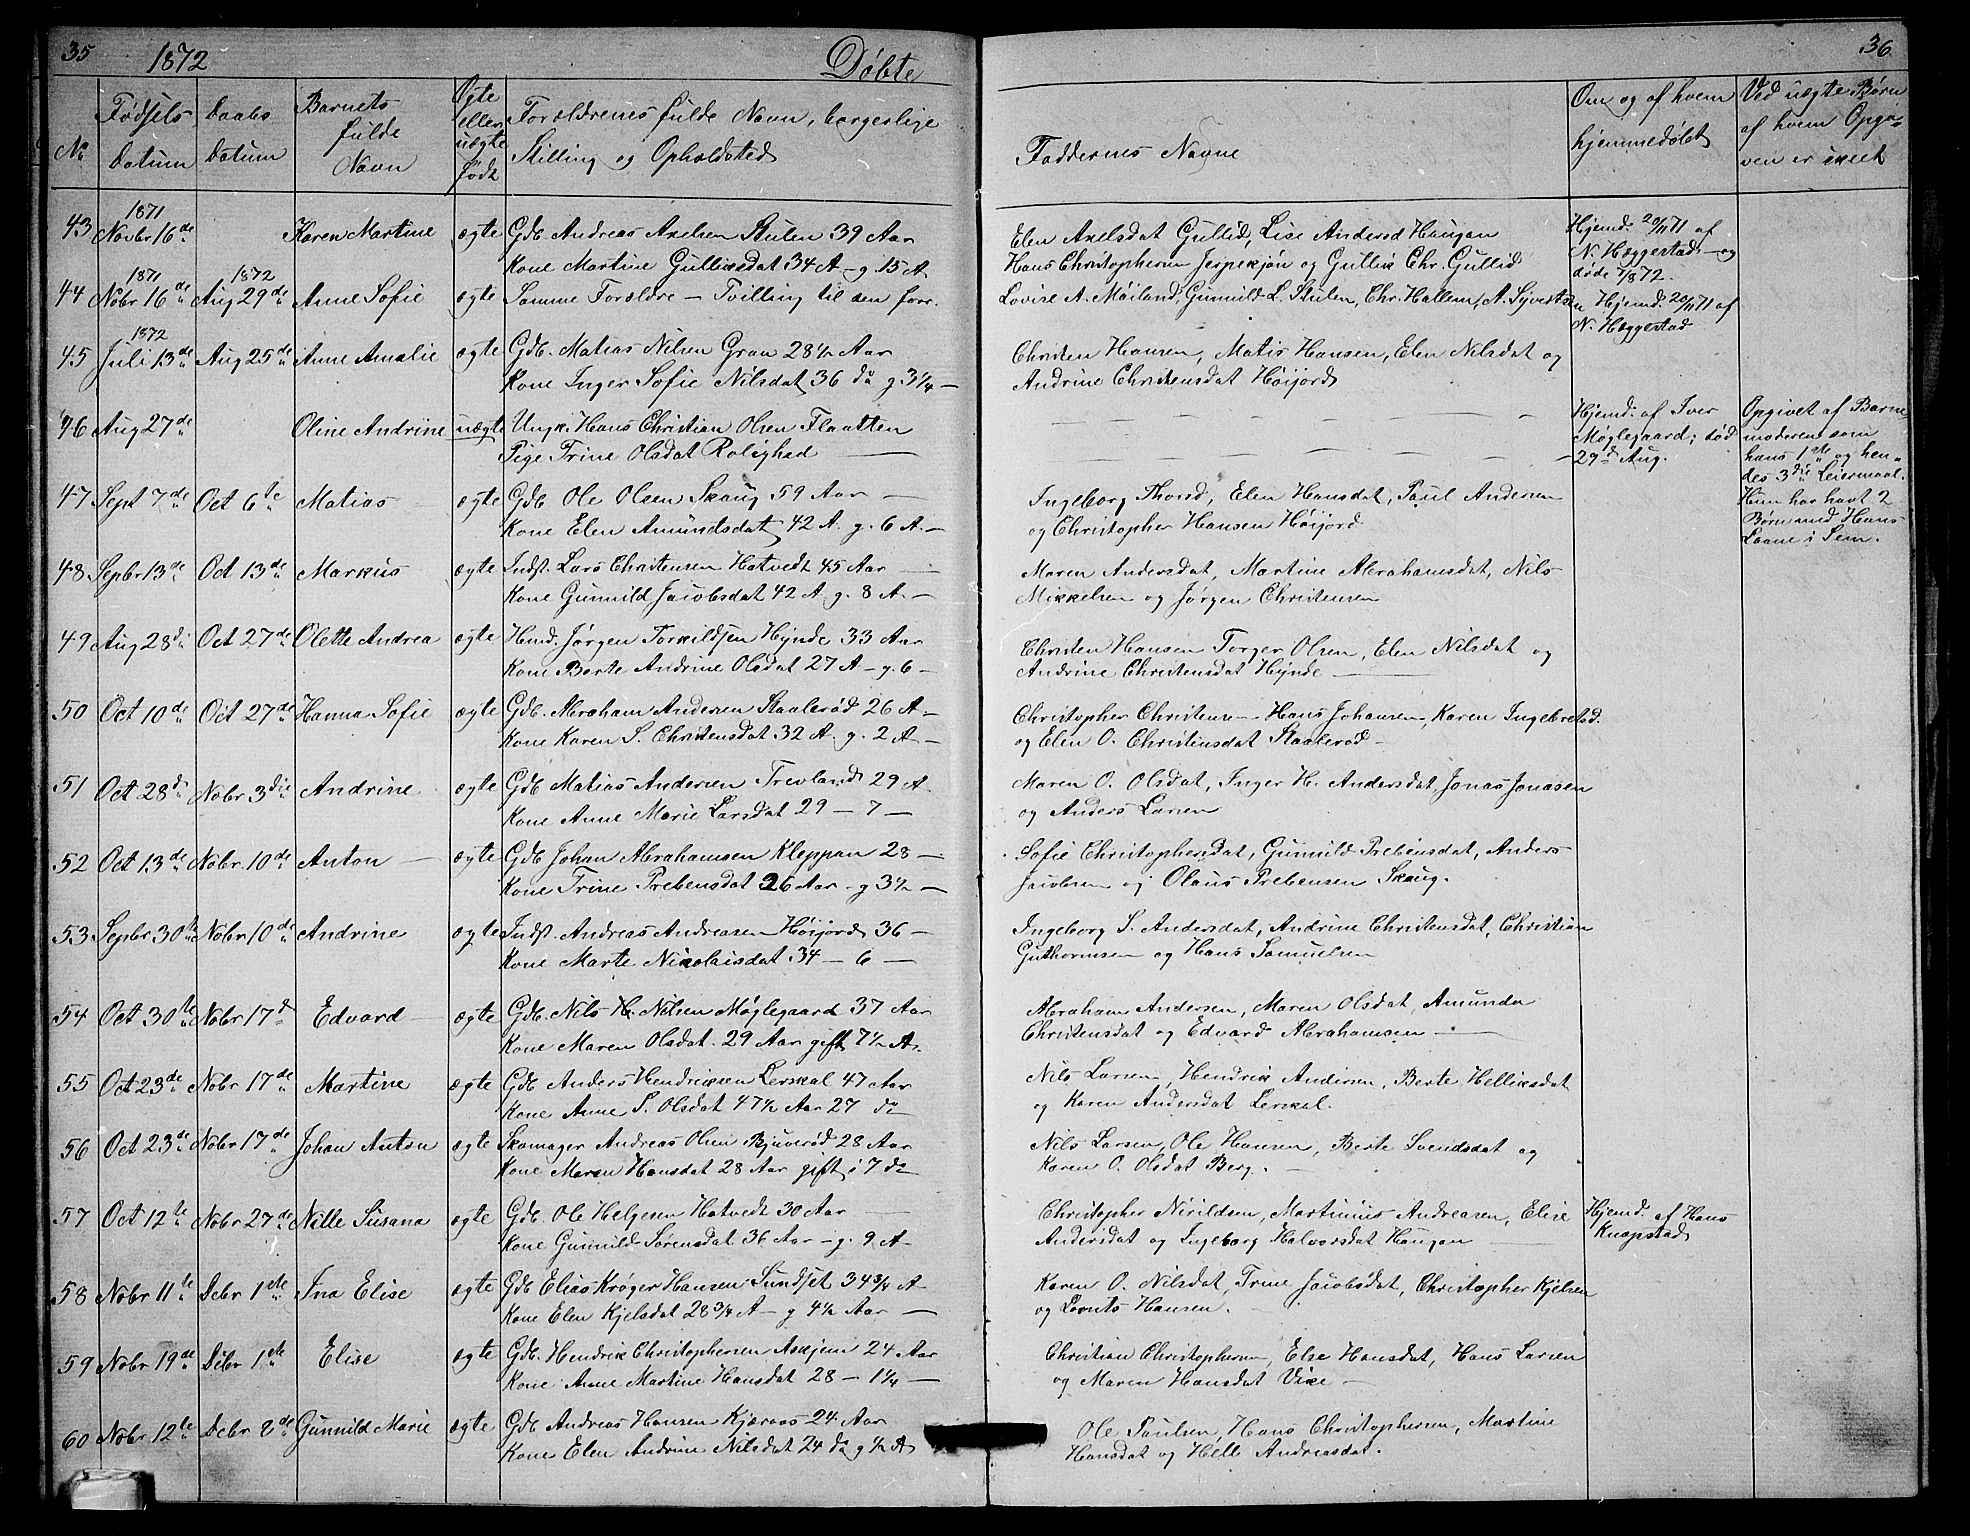 35 1872 Døbte
No
Fødsels
Datum
Daabs
Datum
Barnets
fulde
Navn
Ægte
eller
uægte
født
Forældrenes fulde Navn, borgerlige
Stilling og Opholdsted
43 1871 Novbr 16de Karen Martine ægte Gdb. Andreas Axelsen Stulen 39 Aar
Kone Martine Gulliksdat 34 A – g. 15 A.
44 1871 Nobr 16de 1872 Aug 29de Anne Sofie ægte Samme Forældre – Tvilling til den forr.
45 1872 Juli 13de Aug 25de Anne Amalie ægte Gdb. Matias Nilsen Gran 28½ Aar
Kone Inger Sofie Nilsdat 36 do g 3¼ –
46 Aug 27de Oline Andrine uægte Ungk. Hans Christian Olsen Flaatten
Pige Trine Olsdat Rolighed
47 Sept 7de Oct 6te Matias ægte Gdb Ole Olsen Skaug 59 Aar
Kone Elen Amundsdatt 42 A. g. 6 A. –
48 Sepbr 13de Oct 13de Markus ægte Indst. Lars Christensen Hatvedt 45 Aar
Kone Gunnild Jacobsdat 42 A. g. 8 A. –
49 Aug 28d Oct 27de Olette Andrea ægte Hmd. Jørgen Torkildsen Hynde 33 Aar
Kone Berte Andrine Olsdat 27 A – g. 6 –
50 Oct 10de Oct 27de Hanna Sofie ægte Gdb. Abraham Andersen Staalerød 26 A. –
Kone Karen S. Christensdat 32 A. g. 2 A –
51 Oct 28d Nobr 3die Andrine ægte Gdb Matias Andersen Trevland 29 A.
Kone Anne Marie Larsdat 29 – 7 –
52 Oct 13de Nobr 10de Anton ægte Gdb Johan Abrahamsen Kleppan 28 –
Kone Trine Prebensdat 26 Aar – g 3½ –
53 Sepbr 30te Nobr 10de Andrine ægte Indst. Andreas Andreasen Høijord 36 –
Kone Marte Nikolaisdat 34 – 6 –
54 Oct 30te Nobr 17d Edvard ægte Gdb. Nils H. Nilsen Møglegaard 37 Aar
Kone Maren Olsdat. 29 Aar gift 7½ A.
55 Oct 23de Nobr 17de Martine ægte Gdb Anders Hendriksen Lerskal 47 Aar
Kone Anne S. Olsdat 47½ Aar 27 do
56 Oct 23de Nobr 17de Johan Anton ægte Skomager Andreas Olsen Bjuerød 28 Aar
Kone Maren Hansdat 28 Aar gift i 7 do
57 Oct 12te Nobr 27de Nille Susana ægte Gdb. Ole Helgesen Hatvedt 30 Aar
Kone Gunnild Sørensdat 36 Aar – g. 9 A –
58 Nobr 11te Debr 1ste Ina Elise ægte Gdb Elias Krøger Hansen Sundset 34¾ A
Kone Elen Kjelsdat 28¾ A – g 4½ Aar –
59 Nobr 19de Debr 1ste Elise ægte Gdb. Hendrik Christophersen Askjem 24 Aar
Kone Anne Martine Hansdat 28 – 1¼ –
60 Nobr 12te Debr 8de Gunnild Marie ægte Gdb Andreas Hansen Kjæraas 24 Aar
Kone Elen Andrine Nilsdat 24 do g ½ A
36
Faddernes Navne
Om og af hvem
hjemmedøbt
Ved uægte Børn
af hvem Opga-
ven er skeet
Elen Axelsdat Gullid, Lise Andersd Haugan
Hans Christophersen Jerpekjøn og Gullik Chr. Gullid
Hjemd. 20/11 71 af
N. Heggestad og
døde 7/1 872.
Lovise A. Møiland, Gunnild L. Stulen, Chr. Hallem, A. Syvertsen
Hjemd. 20/11 71 af
N. Heggestad
Christen Hansen, Matis Hansen, Elen Nilsdat og
Andrine Christensdat Høijord
Hjemd. af Iver
Møglegaard; død
29d Aug.
Opgivet af Barne
moderen som
hans 1ste og hen-
des 3die Leiermaal.
Hun har havt 2
Børn med Hans
Laane i Sem.
Ingeborg Thorsd, Elen Hansdat, Paul Andersen
og Christopher Hansen Høijord
Maren Andersdat, Martine Abrahamsdat, Nils
Mikkelsen og Jørgen Christensen
Christen Hansen Torger Olsen, Elen Nilsdat og
Andrine Christensdat Hynde
Christopher Christensen – Hans Johansen, Karen Ingebretsd.
og Elen O. Christinsdat Staalerød –
Maren O. Olsdat, Inger H. Andersdat, Jonas Jonasen
og Anders Larsen
Sofie Christophersdat, Gunnild Prebensdat, Anders
Jacobsen og Olaus Prebensen Skaug.
Ingeborg S. Andersdat, Andrine Christensdat, Christian
Guthormsen og Hans Samuelsen
Abraham Andersen, Maren Olsdat, Amunda
Christensdat og Edvard Abrahamsen
Nils Larsen, Hendrik Andersen, Berte Helliksdat
og Karen Andersdat Lerskal.
Nils Larsen, Ole Hansen, Berte Svendsdat og
Karen O. Olsdat Berg.
Christopher Nirildsen, Martinius Andreasen, Elise
Andersdat og Ingeborg Halvorsdat Haugan
Hjemd. af Hans
Knapstad
Karen O. Nilsdat, Trine Jacobsdat, Christopher Kjelsen
og Lorents Hansen.
Christian Christophersen, Else Hansdat, Hans Larsen
og Maren Hansdat Vike –
Ole Paulsen, Hans Christophersen, Martine
Hansdat og Helle Andreasdat.